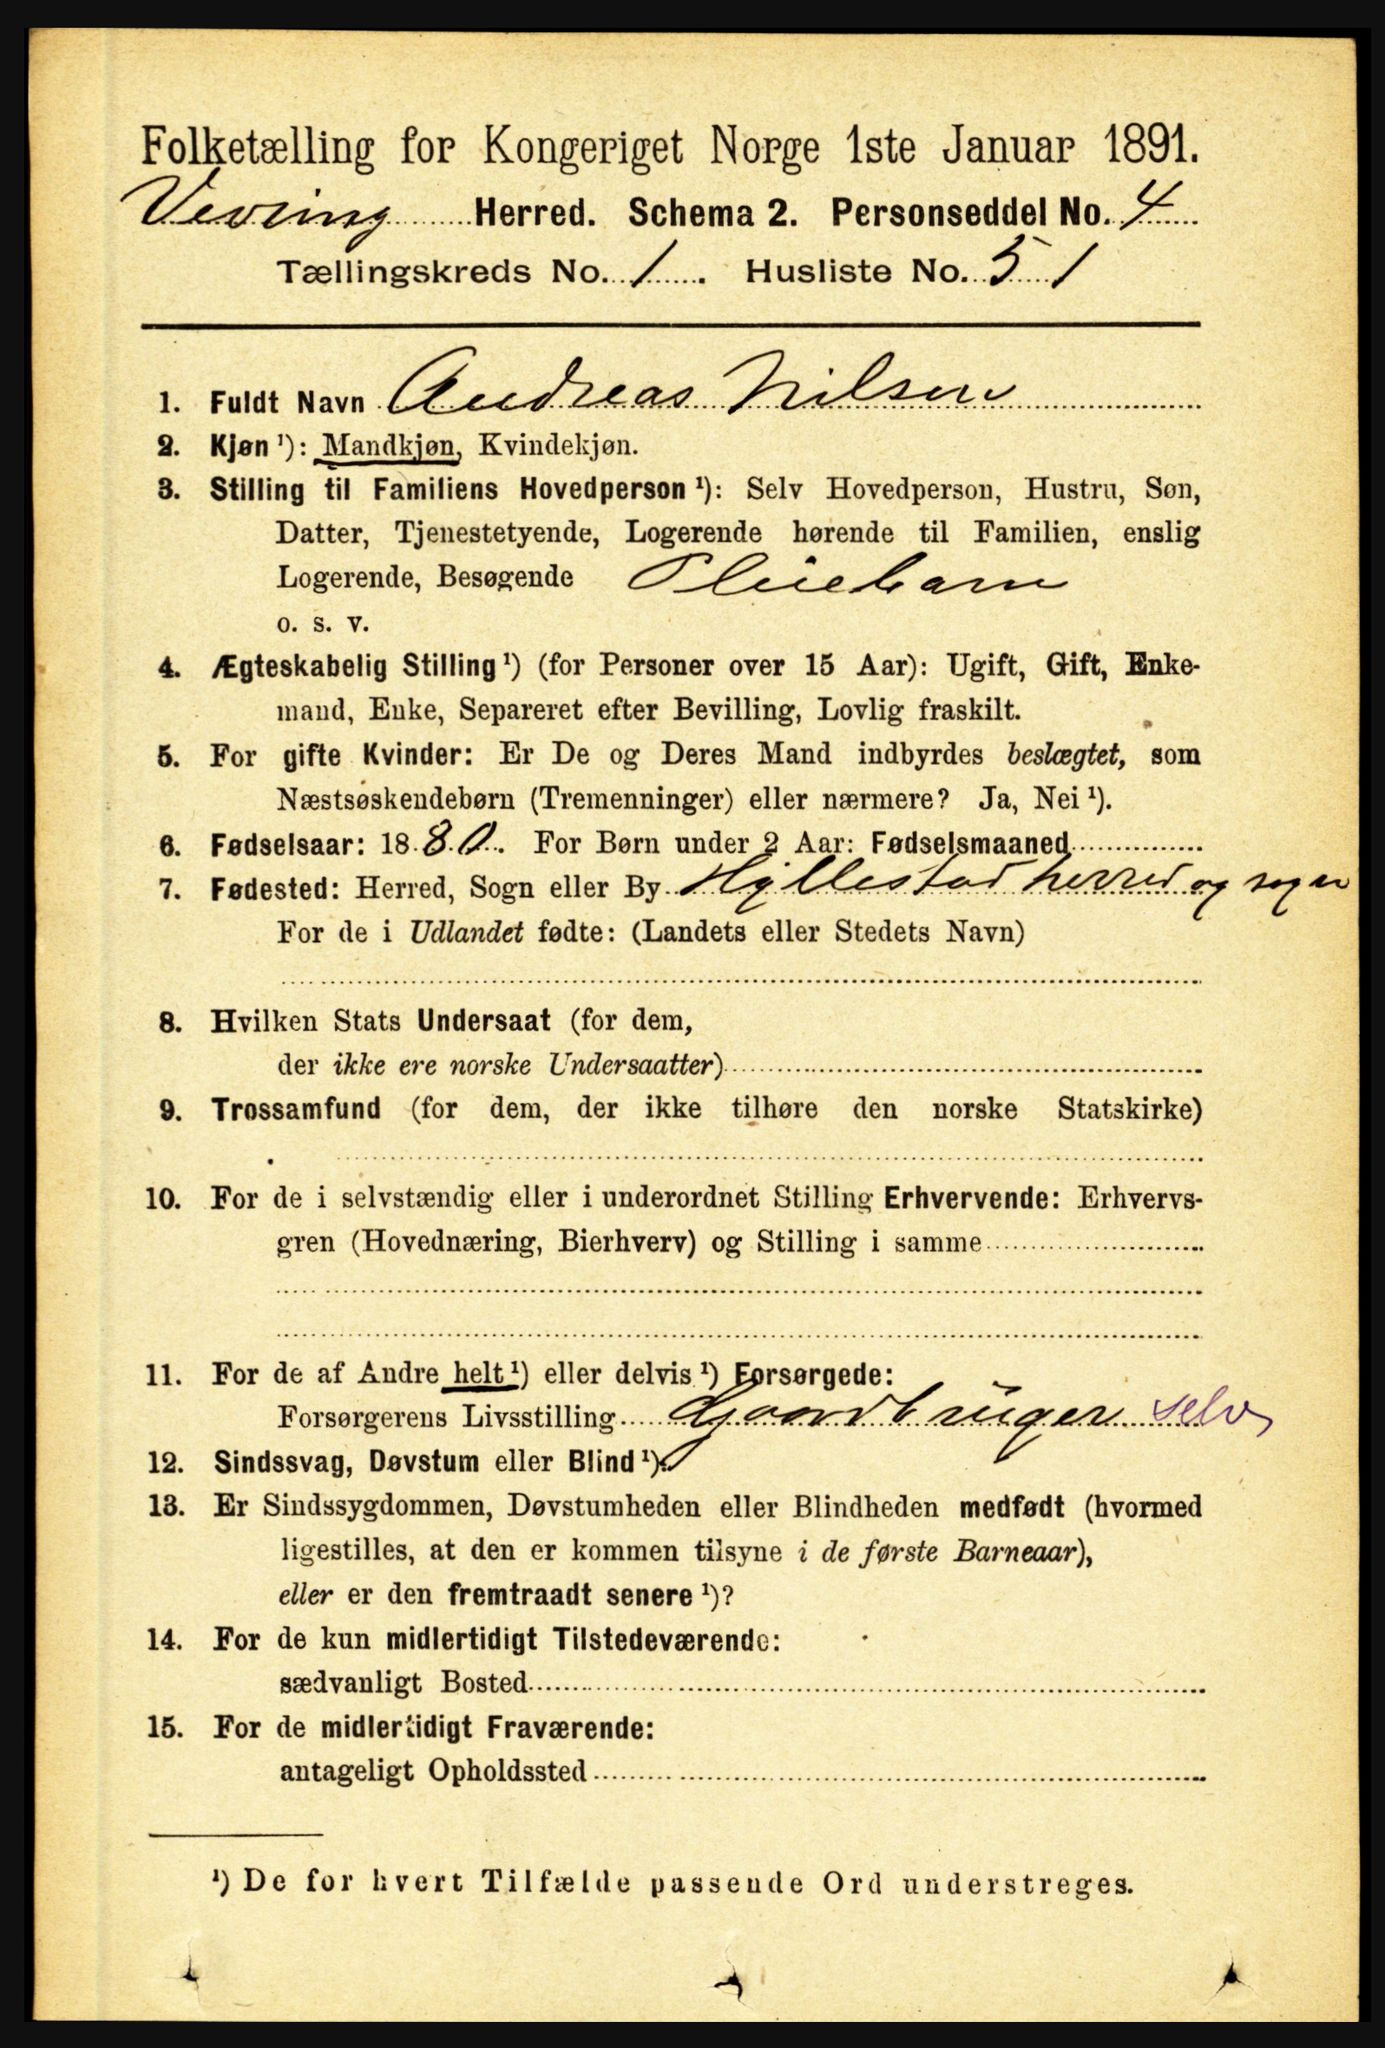 Folketælling for Kongeriget Norge 1ste Januar 1891.
Vevring Herred. Schema 2. Personseddel No. 4
Tællingskreds No. 1. Husliste No. 51
1. Fuldt Navn Andreas Nilsen
2. Kjøn ¹): Mandkjøn, Kvindekjøn.
3. Stilling til Familiens Hovedperson ¹): Selv Hovedperson, Hustru, Søn,
Datter, Tjenestetyende, Logerende hørende til Familien, enslig
Logerende, Besøgende Pleiebarn
o. s. v.
4. Ægteskabelig Stilling ¹) (for Personer over 15 Aar): Ugift, Gift, Enke-
mand, Enke, Separeret efter Bevilling, Lovlig fraskilt.
5. For gifte Kvinder: Er De og Deres Mand indbyrdes beslægtet, som
Næstsøskendebørn (Tremenninger) eller nærmere? Ja, Nei ¹).
6. Fødselsaar: 1880. For Børn under 2 Aar: Fødselsmaaned
7. Fødested: Herred, Sogn eller By Hyllestad herred og sogn
For de i Udlandet fødte: (Landets eller Stedets Navn)
8. Hvilken Stats Undersaat (for dem,
der ikke ere norske Undersaatter)
9. Trossamfund (for dem, der ikke tilhøre den norske Statskirke)
10. For de i selvstændig eller i underordnet Stilling Erhvervende: Erhvervs-
gren (Hovednæring, Bierhverv) og Stilling i samme
11. For de af Andre helt ¹) eller delvis ¹) Forsørgede:
Forsørgerens Livsstilling Gaardbruger selv
12. Sindssvag, Døvstum eller Blind ¹).
13. Er Sindssygdommen, Døvstumheden eller Blindheden medfødt (hvormed
ligestilles, at den er kommen tilsyne i de første Barneaar),
eller er den fremtraadt senere ¹)?
14. For de kun midlertidigt Tilstedeværende:
sædvanligt Bosted
15. For de midlertidigt Fraværende:
antageligt Opholdssted
¹) De for hvert Tilfælde passende Ord understreges.